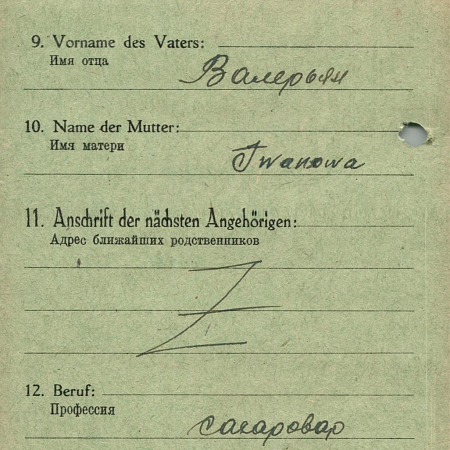 9. Vorname des Vaters:
Имя отца
Валерьян
10. Name der Mutter:
Имя матери
Iwanowa
11. Anschrift der nächsten Angehörigen:
Адрес ближайших родственников
Z
12. Beruf:
Профессия
сахаровар